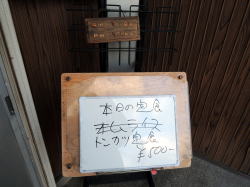 本日の定食
オムライス
トンカツ定食
¥500-